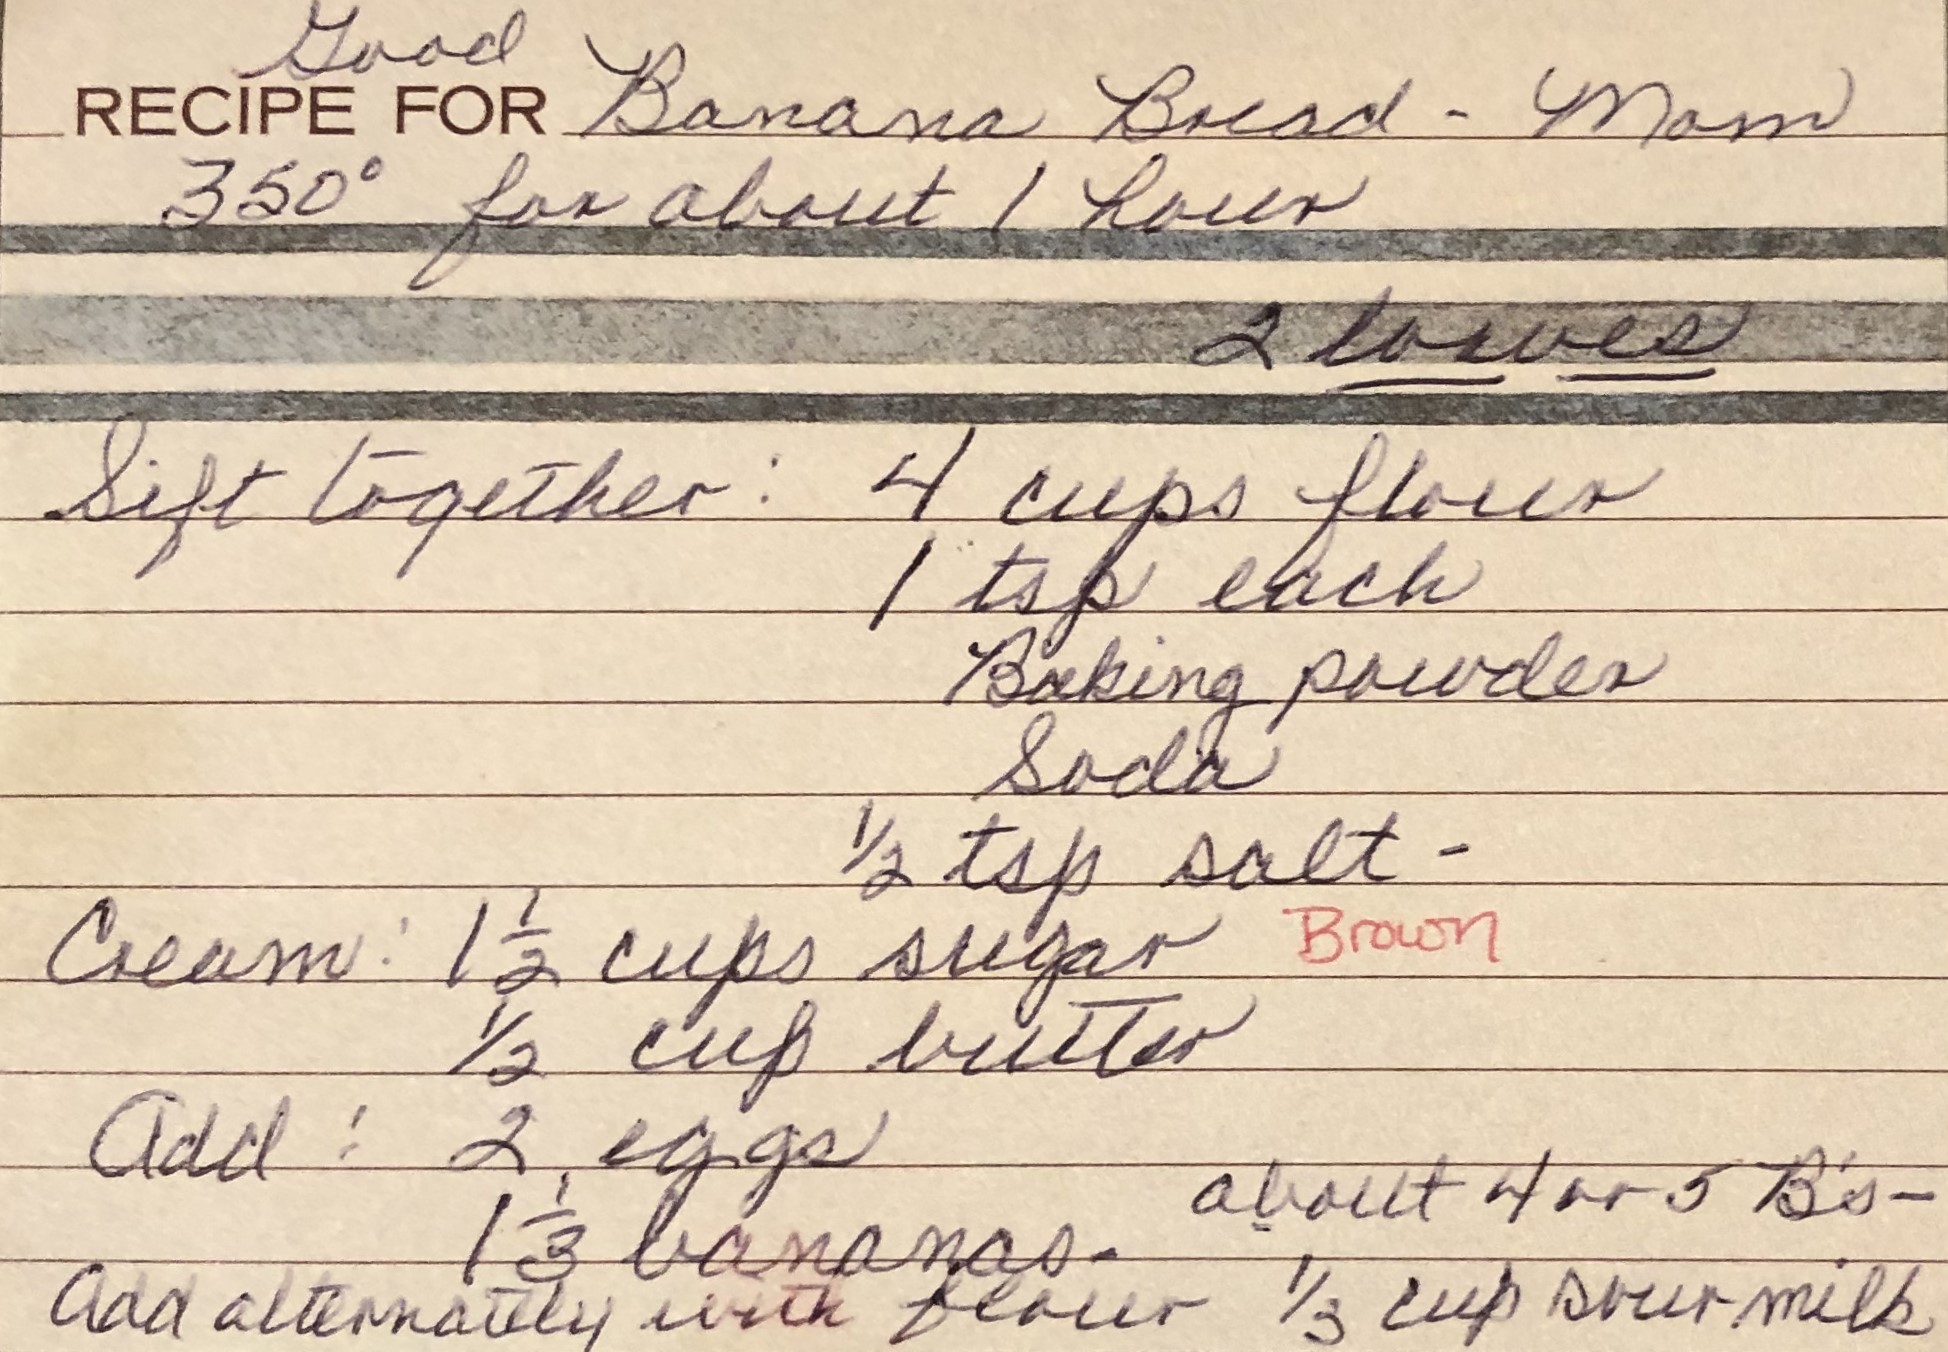 Good
RECIPE FOR Banana Bread - Mom
350° for about 1 hour
2 loaves
Sift together: 4 cups flour
1 tsp each
Baking powder
Soda
½ tsp salt -
Cream: 1½ cups sugar Brown
½ cup butter
Add: 2 eggs
about 4 or 5 B's -
1⅓ bananas -
Add alternately with flour ⅓ cup sour milk